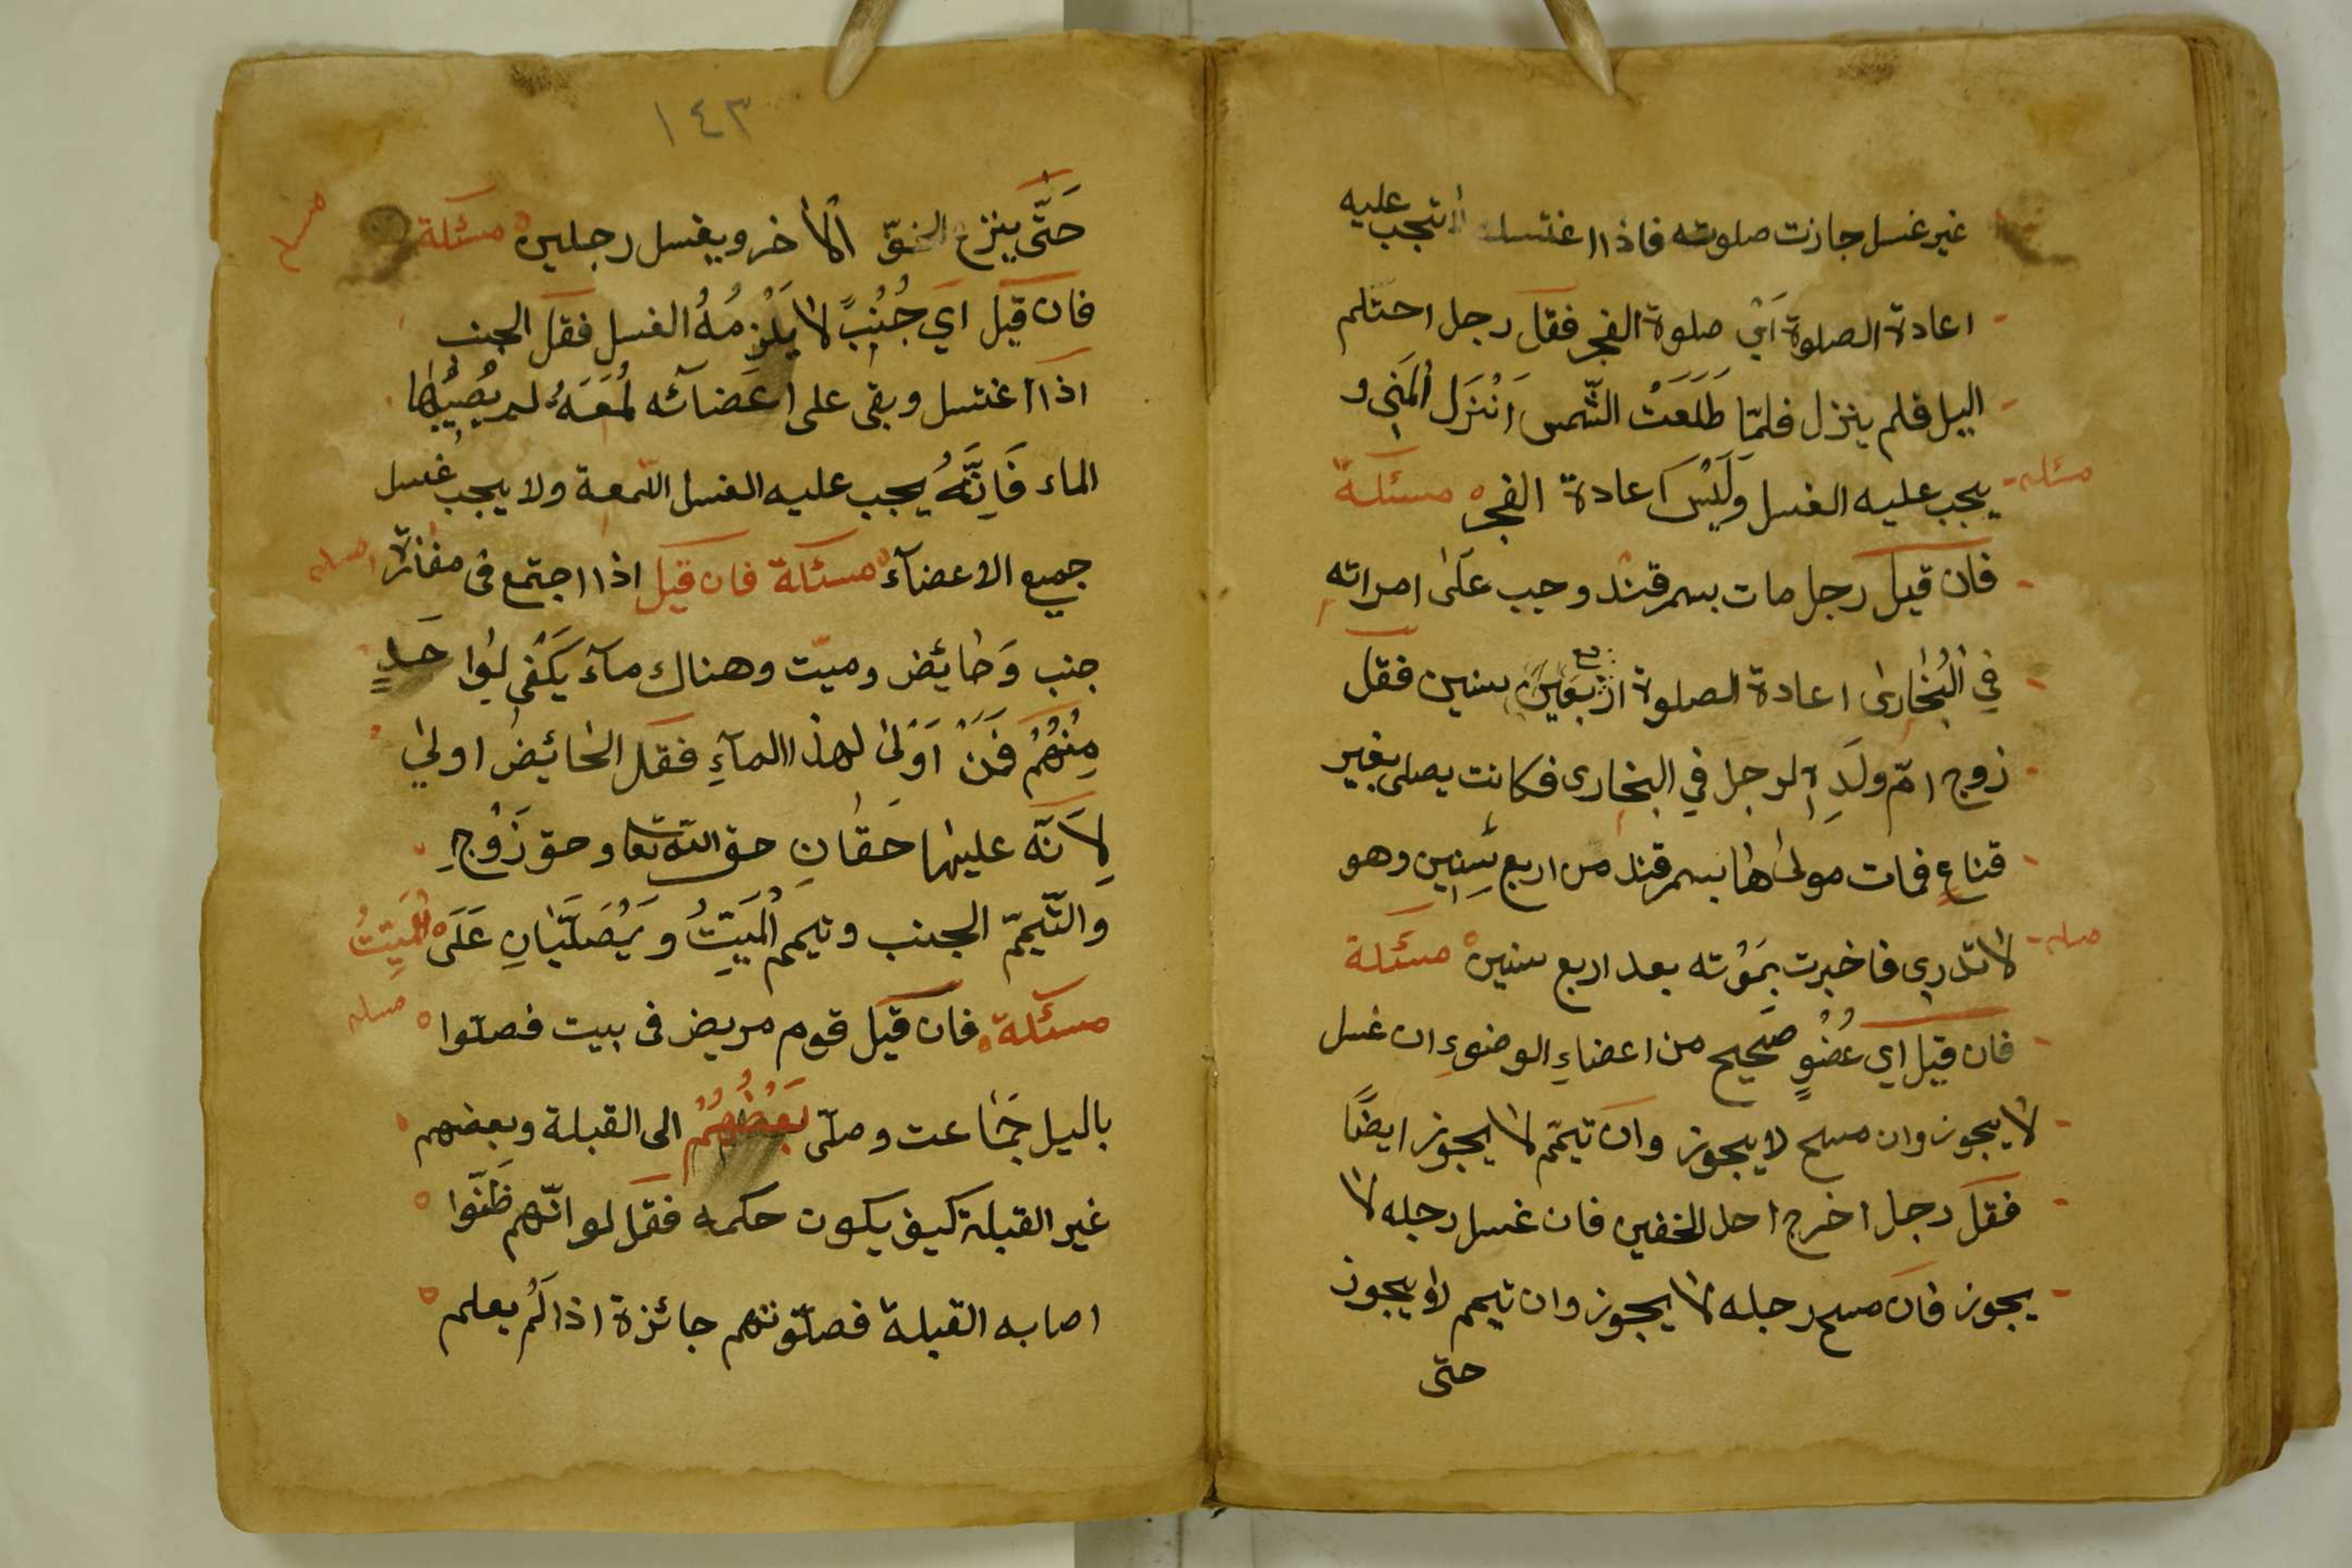 غير غسل جازت صلوته فاذا اغتسل لا تجب عليه
اعادة الصلوة اَيْ صلوة الفجر فقل رجل احتلم
اليل فلم ينزل فلمّا طَلَعَتْ الشّمس اَنْزَل اْلمَنِى و
مسئله
يجب عليه الغسل وَلَيْسَ اعادة الفجر مسئلة
فان قيل رجل مات بسمرقند وجب عَلَىٰ امراته
فِي اْلبُخارىٰ اعادة الصلوة اربع سنين فقل
زوج امّ ولَدِ الرجل في البخارى فكانت يصلى بغير
قناعٍ فمات مولىٰ ها بسمرقند من اربع سِنِين وهو
مسله
لا تدرى فاخبرت بمَوْته بعد اربع سنين مسئلة
فان قيل اي عُضْوٍ صَحيح من اعضاءِ الوضوءِ ان غسل
لا يجوز وان مسح لا يجوز وان تيمّم لا يجوز ايضًا
فقل رجل اخرج احد الخفين فان غسل رجله لا
يجوز فان مسح رجله لا يجوز وان تيمم لا يجوز
حتى
١٤٣
حَتَّى ينزع الخفّ اْلاٰخر ويغسل رجلين مسئلة
مسله
فان قيل اي جُنُبً لا يَلْزِمُهُ الغسل فقل الجنب
اذا اغتسل وبقى على اعَضآئه لُمْعَةُ لم يُصِيْبُها
الماء فَاِنَّهُ يجب عليه الغسل اللّمعة ولا يجب غسل
جميع الاعضآء مسئلة فان قيل اذا اجتمع فى مفازة
مسله
جنب وَحٰايُض وميّت وهناك مآء يَكْفِى لِوٰاحَدٍ
مِنْهُمْ فَمَنْ اَوْلىٰ لهذا المآءِ فقل الحائيضُ اولىٰ
لِاَنَّه عليها حَقٰانِ حق اللّه تعا وحق زَوْجِ
وَالتَّيمّمّ الجنب وتيمم اْلمَيِّتُ وَ يُصَلَّيٰانِ عَلَى اْلمَيِّتُ
مسئلة فان قيل قوم مريض فى بيت فصلّوا
مسله
باليل جَمٰاعت وصلّى بَعْضُهُمْ الى القبلة وبعضهم
غير القبلة كيف يكون حكمه فقل لو انّهم ظَنّوا
اصابه القبلة فصلّوتهم جائزة اذا لَم يعلم